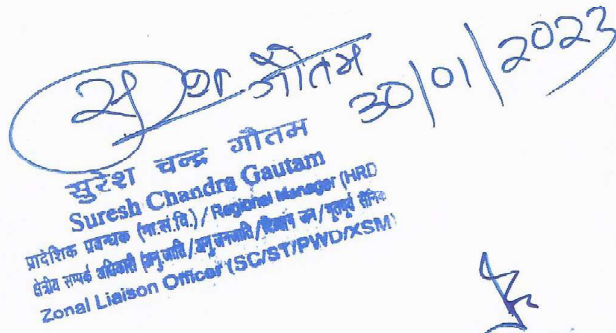 सुरेश गौतम 30/01/2023
सुरेश चन्द्र गौतम
Suresh Chandra Gautam
प्रादेशिक प्रबन्धक (मा.सं.वि.) / Regional Manager (HRD
क्षेत्रीय सम्पर्क अधिकारी (अनु.जाति/अनु.जनजाति/विकलांग जन/भूतपूर्व सैनिक
Zonal Liaison Officer (SC/ST/PWD/XSM)